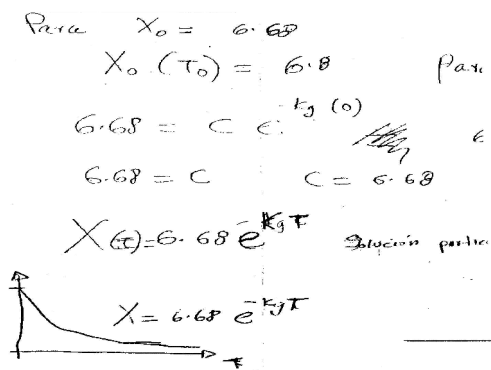 Para X₀ = 6.68
X₀ (T₀) = 6.8
Par
6.68 = C e^{-kg (0)}
6.68 = C C = 6.68
X(t) = 6.68 e^{-kgT} Solución partic
X = 6.68 e^{-kgT}